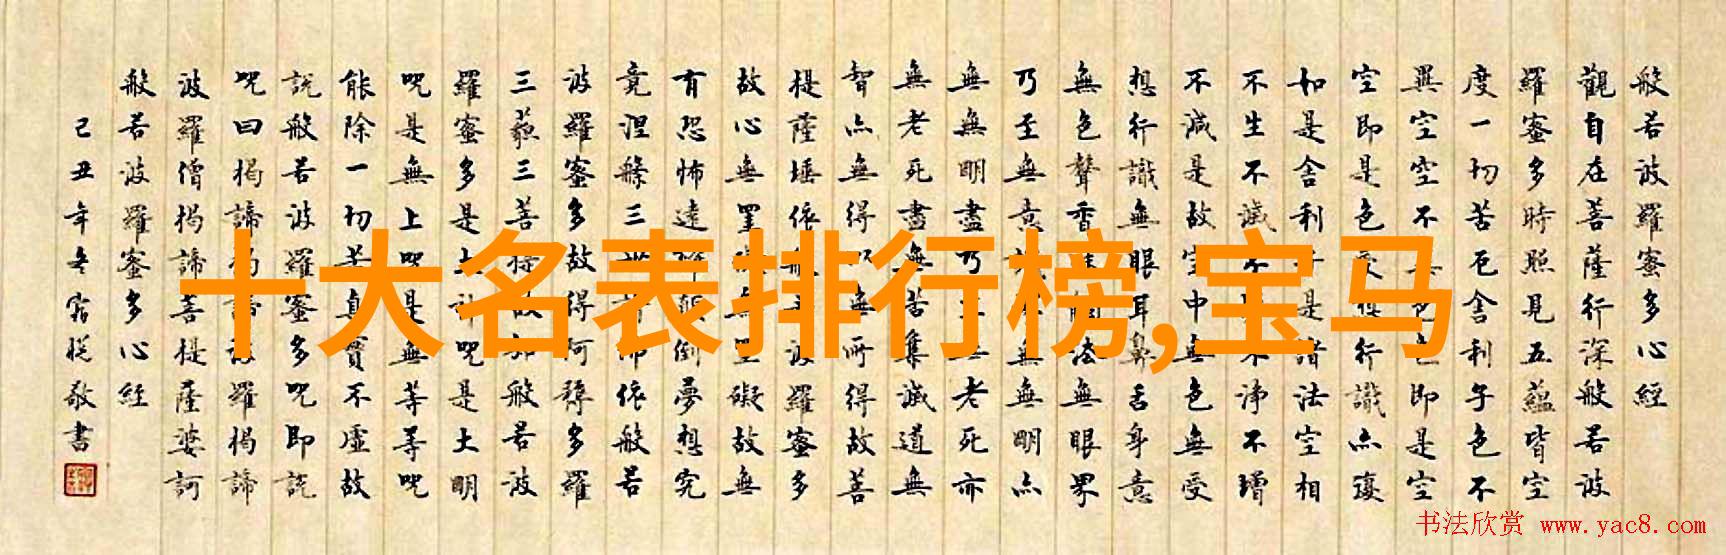 般若波羅蜜多心經
觀自在菩薩行深般若波
羅蜜多時照見五蘊皆空
度一切苦厄舍利子色不
異空空不異色色即是空
空即是色受想行識亦復
如是舍利子是諸法空相
不生不滅不垢不淨不增
不減是故空中無色無受
想行識無眼耳鼻舌身意
無色聲香味觸法無眼界
乃至無意識界無無明亦
無無明盡乃至無老死亦
無老死盡無苦集滅道無
智亦無得以無所得故菩
提薩埵依般若波羅蜜多
故心無罣礙無罣礙故無
有恐怖遠離顛倒夢想究
竟涅槃三世諸佛依般若
波羅蜜多故得阿耨多羅
三藐三菩提故知般若波
羅蜜多是大神咒是大明
咒是無上咒是無等等咒
能除一切苦真實不虛故
說般若波羅蜜多咒即說
咒曰揭諦揭諦波羅揭諦
波羅僧揭諦菩提薩婆訶
般若波羅蜜多心經
己丑年冬敬書
十大名表排行榜,宝马
书法欣赏 www.yac8.com